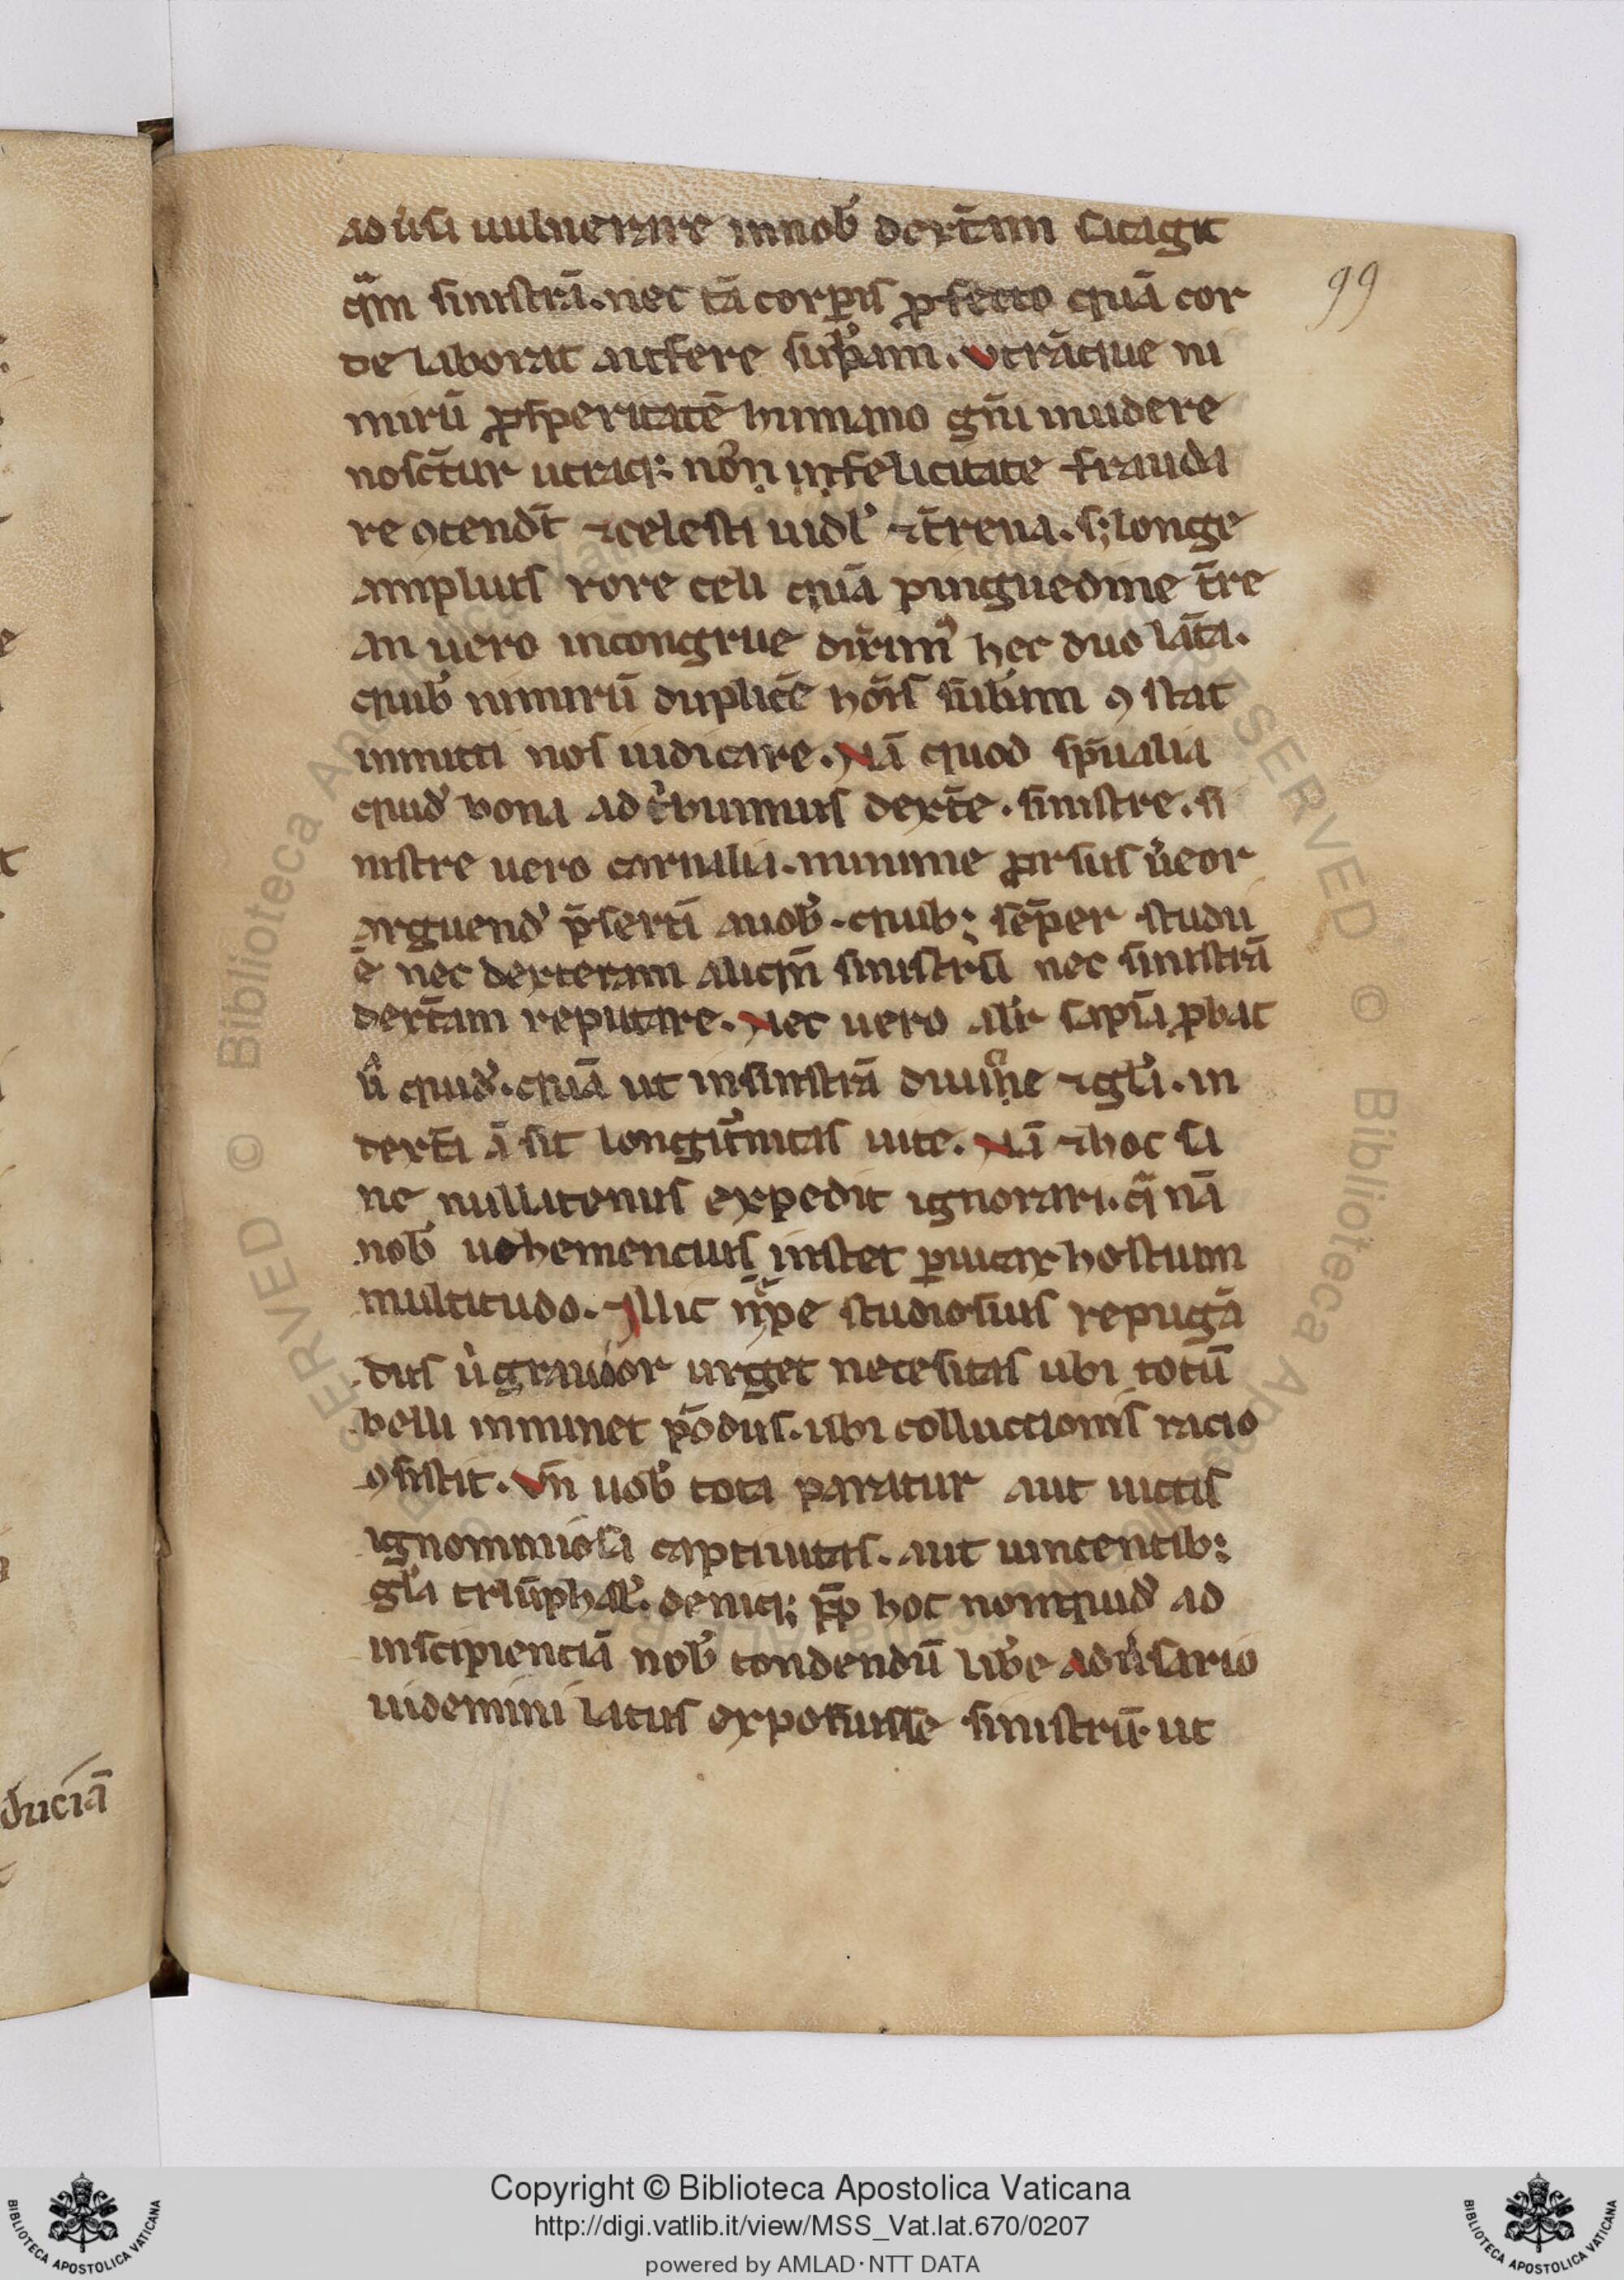 adu͛sí uulnerare in nob̛ dext̄am satagit
qᷓm sinistrā. nec tā corꝑis ꝓfecto quā cor
de laborat aufere sub̛am. Vtrāque ni
mirū ꝓsperitatē humano gn̄i inuidere
nosc̄tur utraq; non infelicitate frauda
re ꝯtendr̄t ⁊ celesti uidl̛ ⁊ t̄rena. s; longe
amplius rore celi quā pinguedine t̄re
an uero incongrue diximꝰ hec duo lāta.
quib̛ nimirū duplicē ho͞is sub̛am ꝯstat
inniti uos iudicare. Nā quod sp̄ualia
quid̛ bona adt͛buimus dext̄e. sinistre. si
nistre uero carnalia. minime ꝓrsus u͛eor
arguend̛ p̄sertī a uob̛. quib; sēper studii
ē nec dexteram aliqn̄ sinistrā nec sinistrā
dext̄am reputare. Nec uero alit̛ sapīa ꝓbat
u͛ quid̛. quā ut in sinistrā diuitie ⁊ gl̛i. in
dext̄a ā sit longit̛nitas uite. Nā ⁊ hoc sa
ne nullatenus expedit ignorari. qᷓ nā
nob̛ uehementius instet ꝑuicax hostium
multitudo. Illic nē̄pe studiosius repugā
dus u͛ grauior urget necesitas ubi totū
belli imminet pōdus. ubi colluctionis racio
ꝯsistit. Vn̄ uob̛ tota paratur aut uictis
ignominiosa captiuitas. aut uincentib;
gl̛a triūphal̛. deniq; ꝓp̄ hoc nonquid̛ ad
inscipienciā nob̛ tondendū lib̛e adu͛sario
uidemini latus exposuisse sinistrū. ut
99
duciā
Copyright © Biblioteca Apostolica Vaticana
http://digi.vatlib.it/view/MSS_Vat.lat.670/0207
powered by AMLAD·NTT DATA